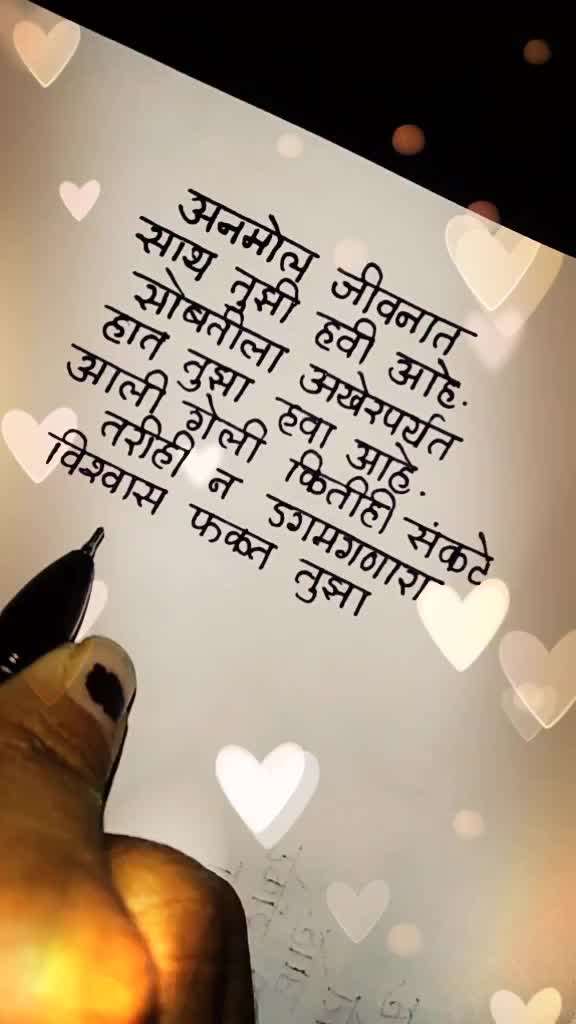 अनमोल जीवनात
साथ तुझी हवी आहे.
सोबतीला अखेरपर्यत
हात तुझा हवा आहे.
आली गेली कितीही संकटे
तरीही न डगमगणारा
विश्वास फक्त तुझा